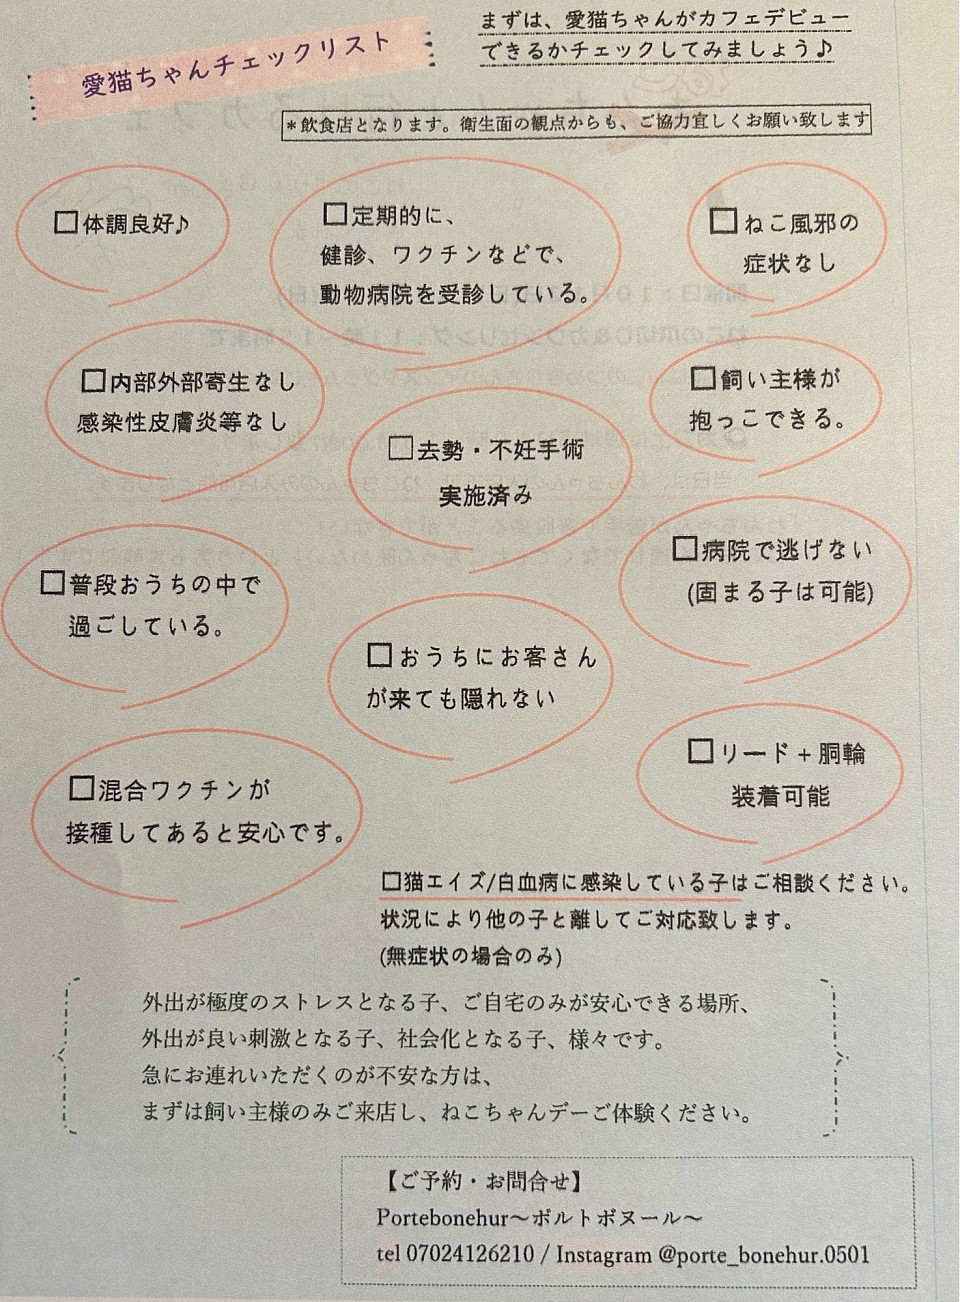 愛猫ちゃんチェックリスト
まずは、愛猫ちゃんがカフェデビュー
できるかチェックしてみましょう♪
*飲食店となります。衛生面の観点からも、ご協力宜しくお願い致します
□体調良好♪
□定期的に、
健診、ワクチンなどで、
動物病院を受診している。
□ねこ風邪の
症状なし
□内部外部寄生なし
感染性皮膚炎等なし
□飼い主様が
抱っこできる。
□去勢・不妊手術
実施済み
□病院で逃げない
(固まる子は可能)
□普段おうちの中で
過ごしている。
□おうちにお客さん
が来ても隠れない
□リード+胴輪
装着可能
□混合ワクチンが
接種してあると安心です。
□猫エイズ/白血病に感染している子はご相談ください。
状況により他の子と離してご対応致します。
(無症状の場合のみ)
外出が極度のストレスとなる子、ご自宅のみが安心できる場所、
外出が良い刺激となる子、社会化となる子、様々です。
急にお連れいただくのが不安な方は、
まずは飼い主様のみご来店し、ねこちゃんデーご体験ください。
【ご予約・お問合せ】
Portebonehur〜ポルトボヌール〜
tel 07024126210 / Instagram @porte_bonehur.0501